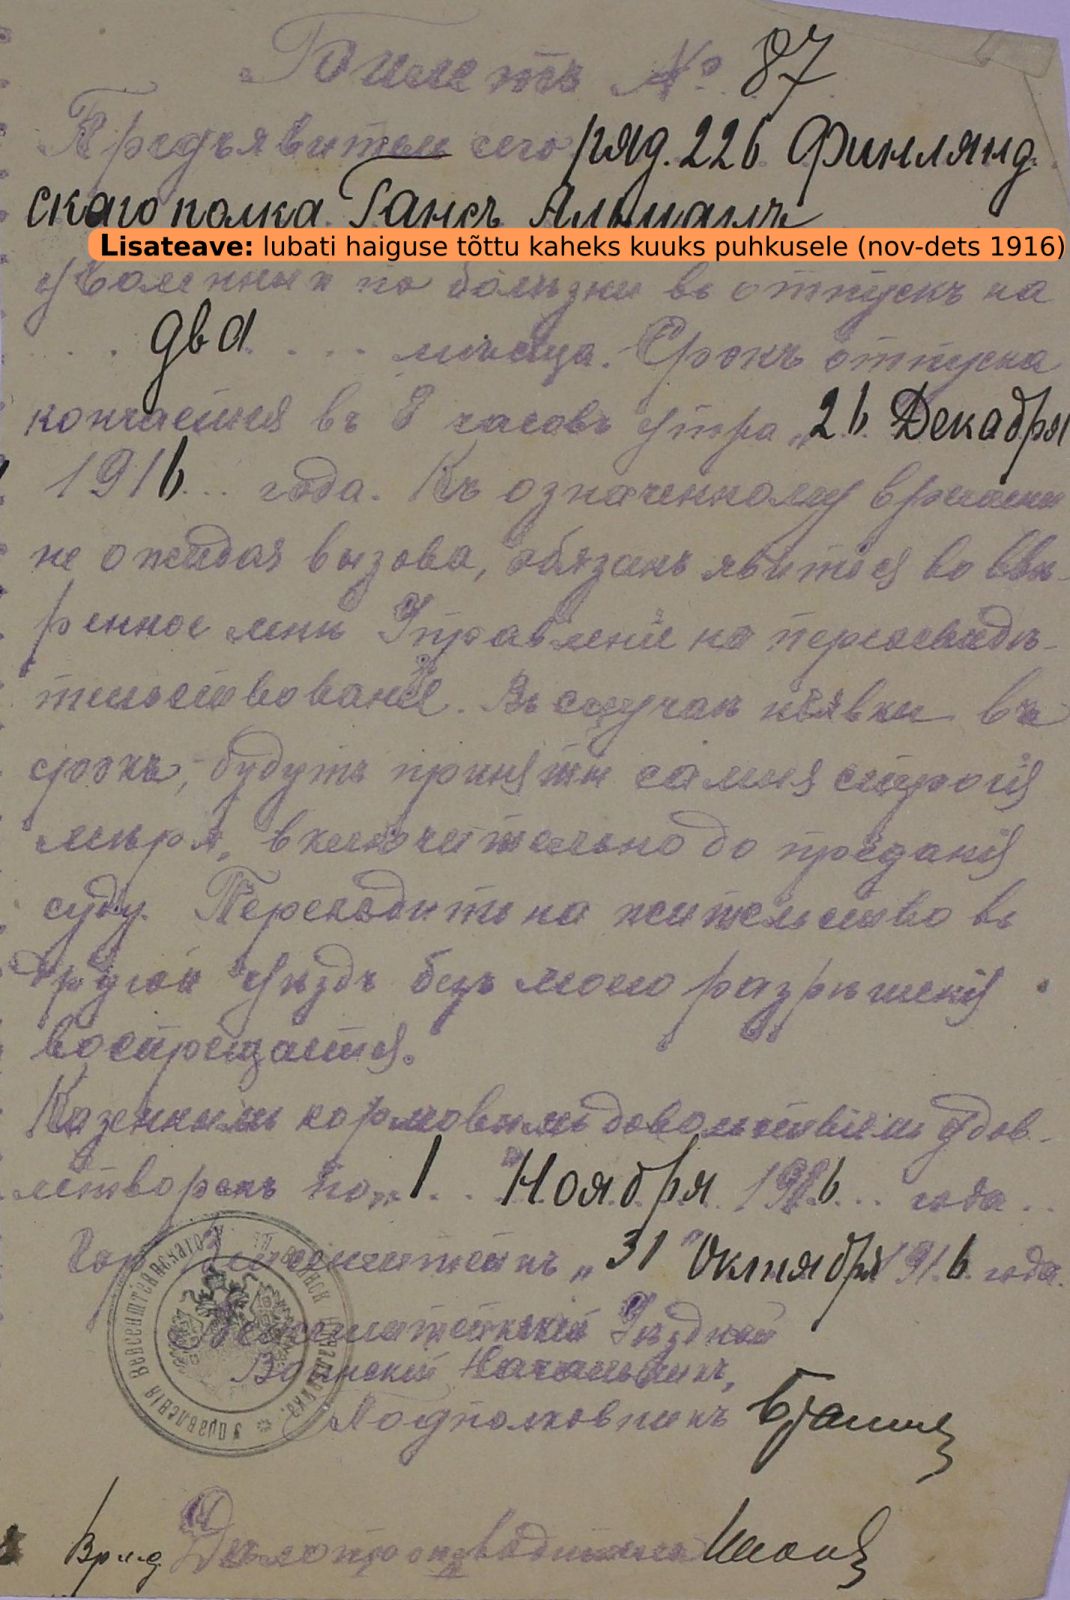 Билетъ № 87
Предъявитель сего ряд. 226 Финлянд-
скаго полка Гансъ
Lisateave: lubati haiguse tõttu kaheks kuuks puhkusele (nov-dets 1916)
уволенный по болѣзни въ отпускъ на
два мѣсяца. Срокъ отпуска
кончается въ 8 часовъ утра „26 Декабря
1916 года. Къ означенному времени
не ожидая вызова, обязанъ явиться во ввѣ-
ренное мнѣ Управленіе на переосвидѣ-
тельствованіе. Въ случаѣ неявки въ
срокъ, будутъ приняты самыя строгія
мѣры, включительно до преданія
суду. Переходить на жительство въ
другой уѣздъ безъ моего разрѣшенія
воспрещается.
Казеннымъ кормовымъ довольствіемъ удов-
летворенъ по „1" Ноября 1916 года
Гор. Вейсенштейнъ „31" Октября 1916 года.
Вейсенштейнскій Уѣздный
Воинскій Начальникъ,
Подполковникъ
Вр.и.д. Дѣлопроизводителя